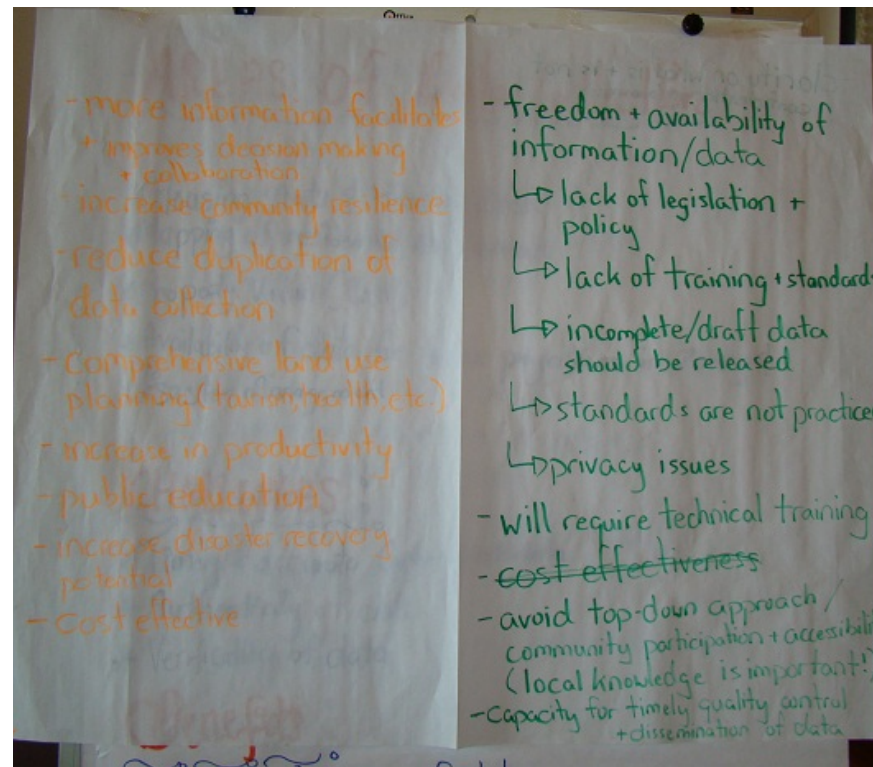 Office
- more information facilitates
+ improves decision making
+ collaboration
- increase community resilience
- reduce duplication of
data collection
- comprehensive land use
planning (tourism, health, etc.)
- increase in productivity
- public education
- increase disaster recovery
potential
- cost effective
- freedom + availability of
information/data
↳ lack of legislation +
policy
↳ lack of training + standard
↳ incomplete/draft data
should be released
↳ standards are not practice
↳ privacy issues
- will require technical training
- cost effectiveness
- avoid top-down approach /
community participation + accessibili
(local knowledge is important!)
- capacity for timely quality control
+ dissemination of data